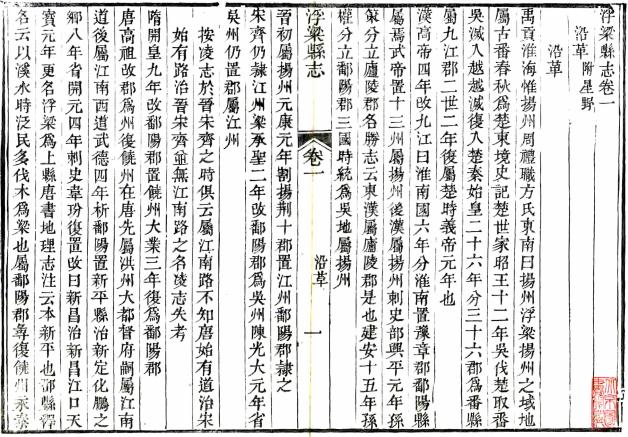 浮梁縣志卷一
沿革 附星野
沿革
禹貢淮海惟揚州周禮職方氏東南曰揚州浮梁揚州之域地
屬古番春秋爲楚東境史記楚世家昭王十二年吳伐楚取番
吳滅入越越滅復入楚秦始皇二十六年分三十六郡爲番縣
屬九江郡二世二年後屬楚時義帝元年也
漢高帝四年改九江曰淮南國六年分淮南置豫章郡鄱陽縣
屬焉武帝置十三州屬揚州後漢屬揚州刺史部興平元年孫
策分立廬陵郡名勝志云東漢屬廬陵郡是也建安十五年孫
權分立鄱陽郡三國時統爲吳地屬揚州
浮梁縣志
卷一
沿革
一
晉初屬揚州元康元年割揚荆十郡置江州鄱陽郡隸之
宋齊仍隸江州梁承聖二年改鄱陽郡爲吳州陳光大元年省
吳州仍置郡屬江州
按凌志於晉宋齊之時俱云屬江南路不知唐始有道治宋
始有路治晉宋齊並無江南路之名凌志失考
隋開皇九年改鄱陽郡置饒州大業三年復爲鄱陽郡
唐高祖改郡爲州復饒州在唐先屬洪州大都督府嗣屬江南
道後屬江南西道武德四年析鄱陽置新平縣治新定化鵬之
鄉八年省開元四年刺史韋玢復置改曰新昌治新昌江口天
寳元年更名浮梁爲上縣唐書地理志注云本新平也郡縣釋
名云以溪水時泛民多伐木爲梁也屬鄱陽郡尋復饒州永泰